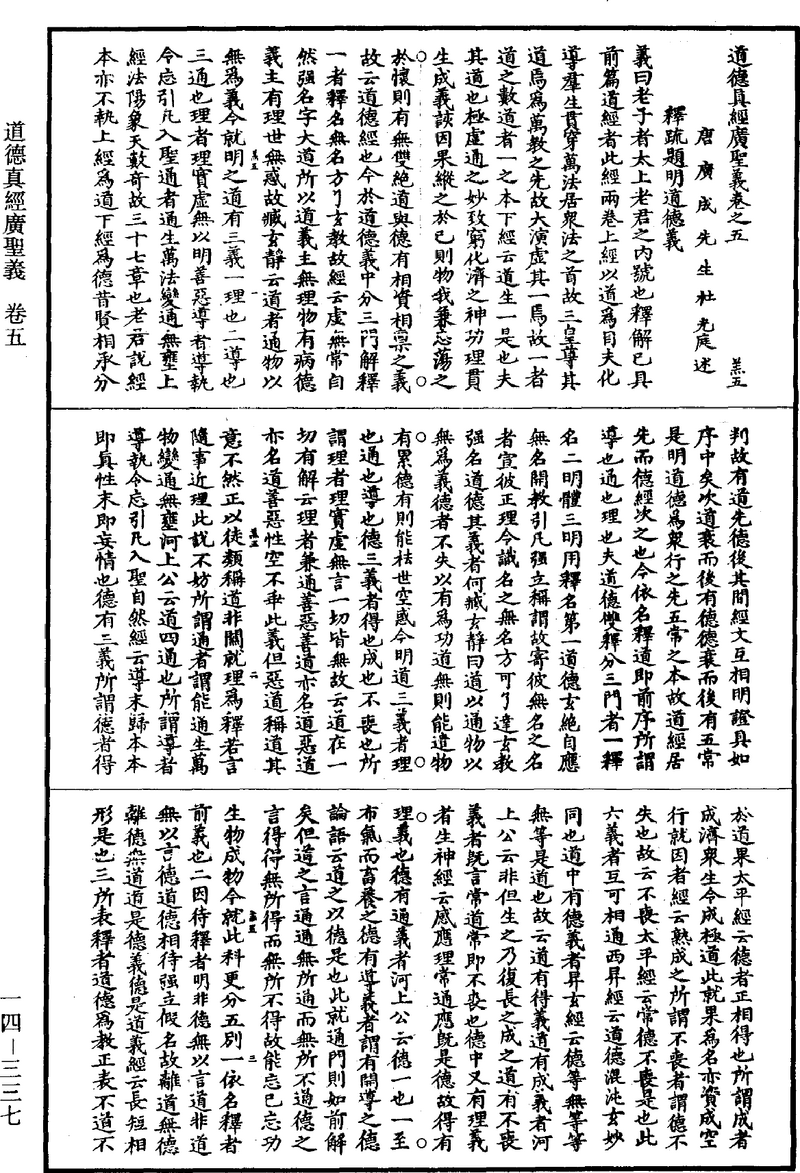 道德真經廣聖義卷之五
羔五
唐廣成先生杜光庭述
釋疏題明道德義
義曰老子者太上老君之內號也釋解已具
前篇道經者此經兩卷上經以道為目夫化
導羣生貫穿萬法居衆法之首故三皇尊其
道焉為萬教之先故大演虛其一焉故一者
道之數道者一之本下經云道生一是也夫
其道也極虛通之妙致窮化濟之神功理貫
生成義該因果縱之於已則物我兼忘蕩之
於懷則有無雙絕道與德有相資相禀之義
故云道德經也今於道德義中分三門解釋
一者釋名無名方了玄教故經云虛無常自
然强名字大道所以道義主無理物有病德
義主有理世無惑故臧玄靜云道者通物以
無為義今就明之道有三義一理也二導也
三通也理者理實虛無以明善惡導者導執
令忘引凡入聖通者通生萬法變通無壅上
經法陽象天數奇故三十七章也老君說經
本亦不執上經為道下經為德昔賢相承分
判故有道先德後其間經文互相明證具如
序中矣次道衰而後有德德衰而後有五常
是明道德為衆行之先五常之本故道經居
先而德經次之也今依名釋道即前序所謂
導也通也理也夫道德雙釋分三門者一釋
名二明體三明用釋名第一道德玄絕自應
無名開教引凡强立稱謂故寄彼無名之名
者宣彼正理令識名之無名方可了達玄教
强名道德其義者何臧玄靜曰道以通物以
無為義德者不失以有為功道無則能遣物
有累德有則能袪世空惑今明道三義者理
也通也導也德三義者得也成也不喪也所
謂理者理實虛無言一切皆無故云道在一
切有解云理者兼通善惡善道亦名道惡道
亦名道善惡性空不乖此義但惡道稱道其
竟不然正以徒類稱道非關就理為釋若言
隨事近理此說不妨所謂通者謂能通生萬
物變通無壅河上公云道四通也所謂導者
導執令忘引凡入聖自然經云導末歸本本
即真性末即妄情也德有三義所謂德者得
於道果太平經云德者正相得也所謂成者
成濟衆生令成極道此就果為名亦資成空
行就因者經云熟成之所謂不喪者謂德不
失也故云不喪太平經云常德不喪是也此
六義者互可相通西昇經云道德混沌玄妙
同也道中有德義者昇玄經云德等無等等
無等是道也故云道有得義道有成義者河
上公云非但生之乃復長之成之道有不喪
義者既言常道常即不喪也德中又有理義
者生神經云感應理常通應既是德故得有
理義也德有通義者河上公云德一也一至
布氣而畜養之德有導義者謂有開導之德
論語云道之以德是也此就通門則如前解
矣但道之言通通無所通而無所不通德之
言得得無所得而無所不得故能忘已忘功
生物成物今就此科更分五別一依名釋者
前義也二因待釋者明非德無以言道非道
無以言德道德相待强立假名故離道無德
離德無道道是德義德是道義經云長短相
形是也三所表釋者道德為教正表不道不
羔五 一
羔五 二
羔五 三
道德真經廣聖義 卷五
一四—三三七